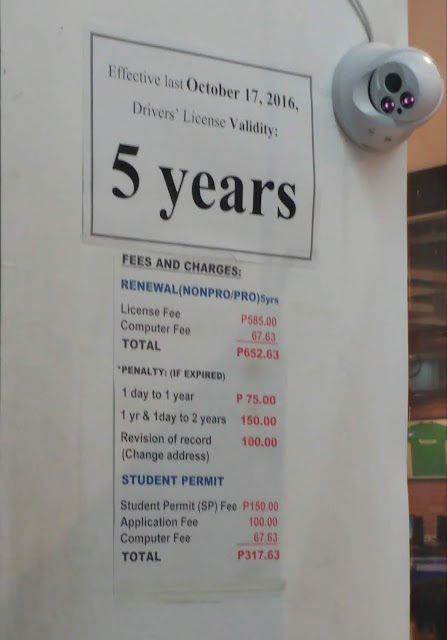 Effective last October 17, 2016,
Drivers' License Validity:
5 years
FEES AND CHARGES:
RENEWAL(NONPRO/PRO)5yrs
License Fee P585.00
Computer Fee 67.63
TOTAL P652.63
*PENALTY: (IF EXPIRED)
1 day to 1 year P 75.00
1 yr & 1day to 2 years 150.00
Revision of record 100.00
(Change address)
STUDENT PERMIT
Student Permit (SP) Fee P150.00
Application Fee 100.00
Computer Fee 67.63
TOTAL P317.63